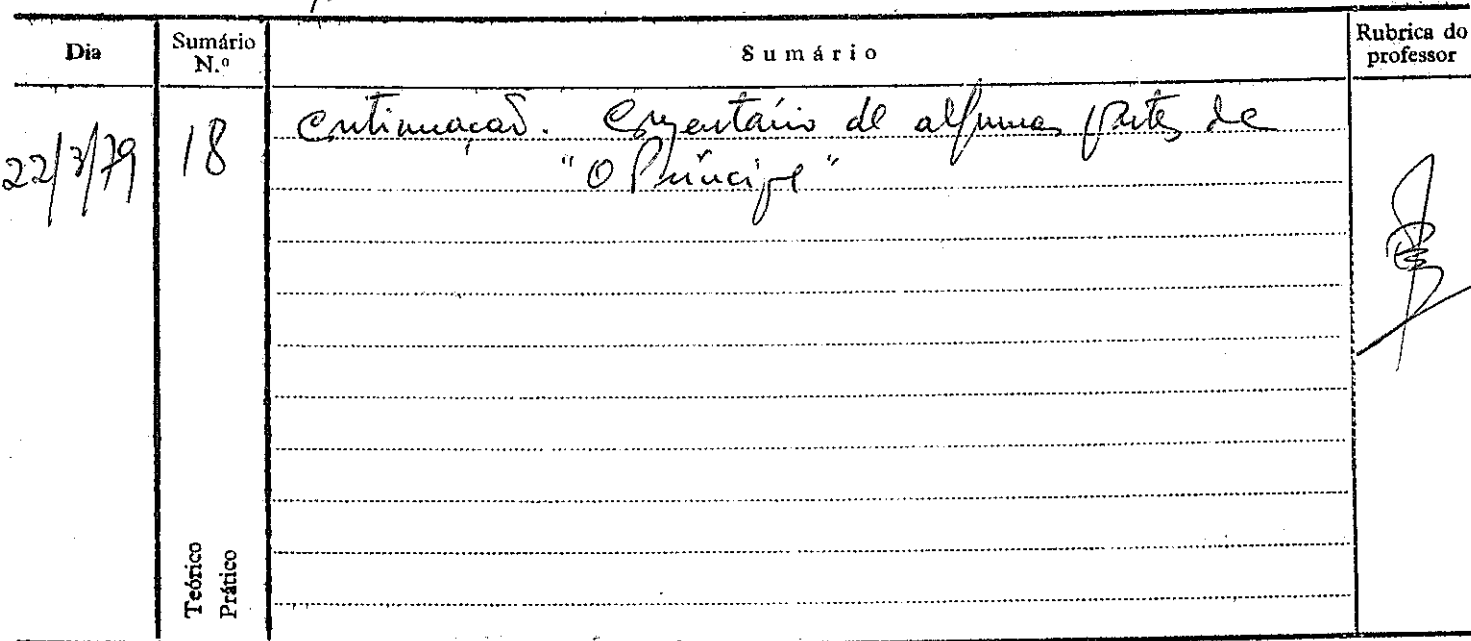 Dia
Sumário N.º
Sumário
Rubrica do professor
22/3/79
18
Continuação. Comentário de algumas partes de
"O Príncipe"
Teórico
Prático